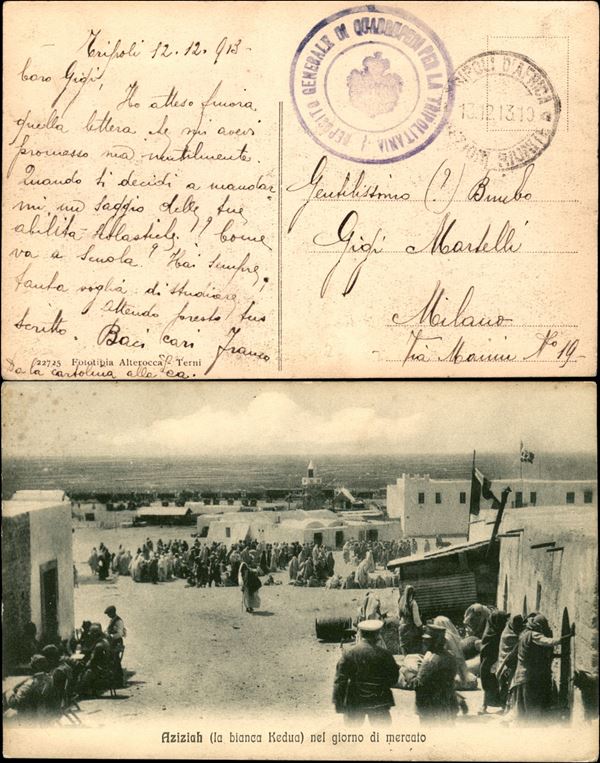 Tripoli 12.12.913-
Caro Gigi,
Ho atteso finora
quella lettera che mi avevi
promesso ma inutilmente.
Quando ti decidi a mandar
mi un saggio delle tue
abilità scolastiche?? Come
va a scuola? Hai sempre
tanta voglia di studiare?
Attendo presto tuo
scritto. Baci cari Franco
22725 Fototipia Alterocca - Terni
Da la cartolina alla
DEPOSITO GENERALE DI QUADRUPEDI PER LA TRIPOLITANIA
TRIPOLI D'AFRICA
13.12.13.10
Gentilissimo (?) Bimbo
Gigi Martelli
Milano
Via N° 19-
Aziziah (la bianca Kedua) nel giorno di mercato